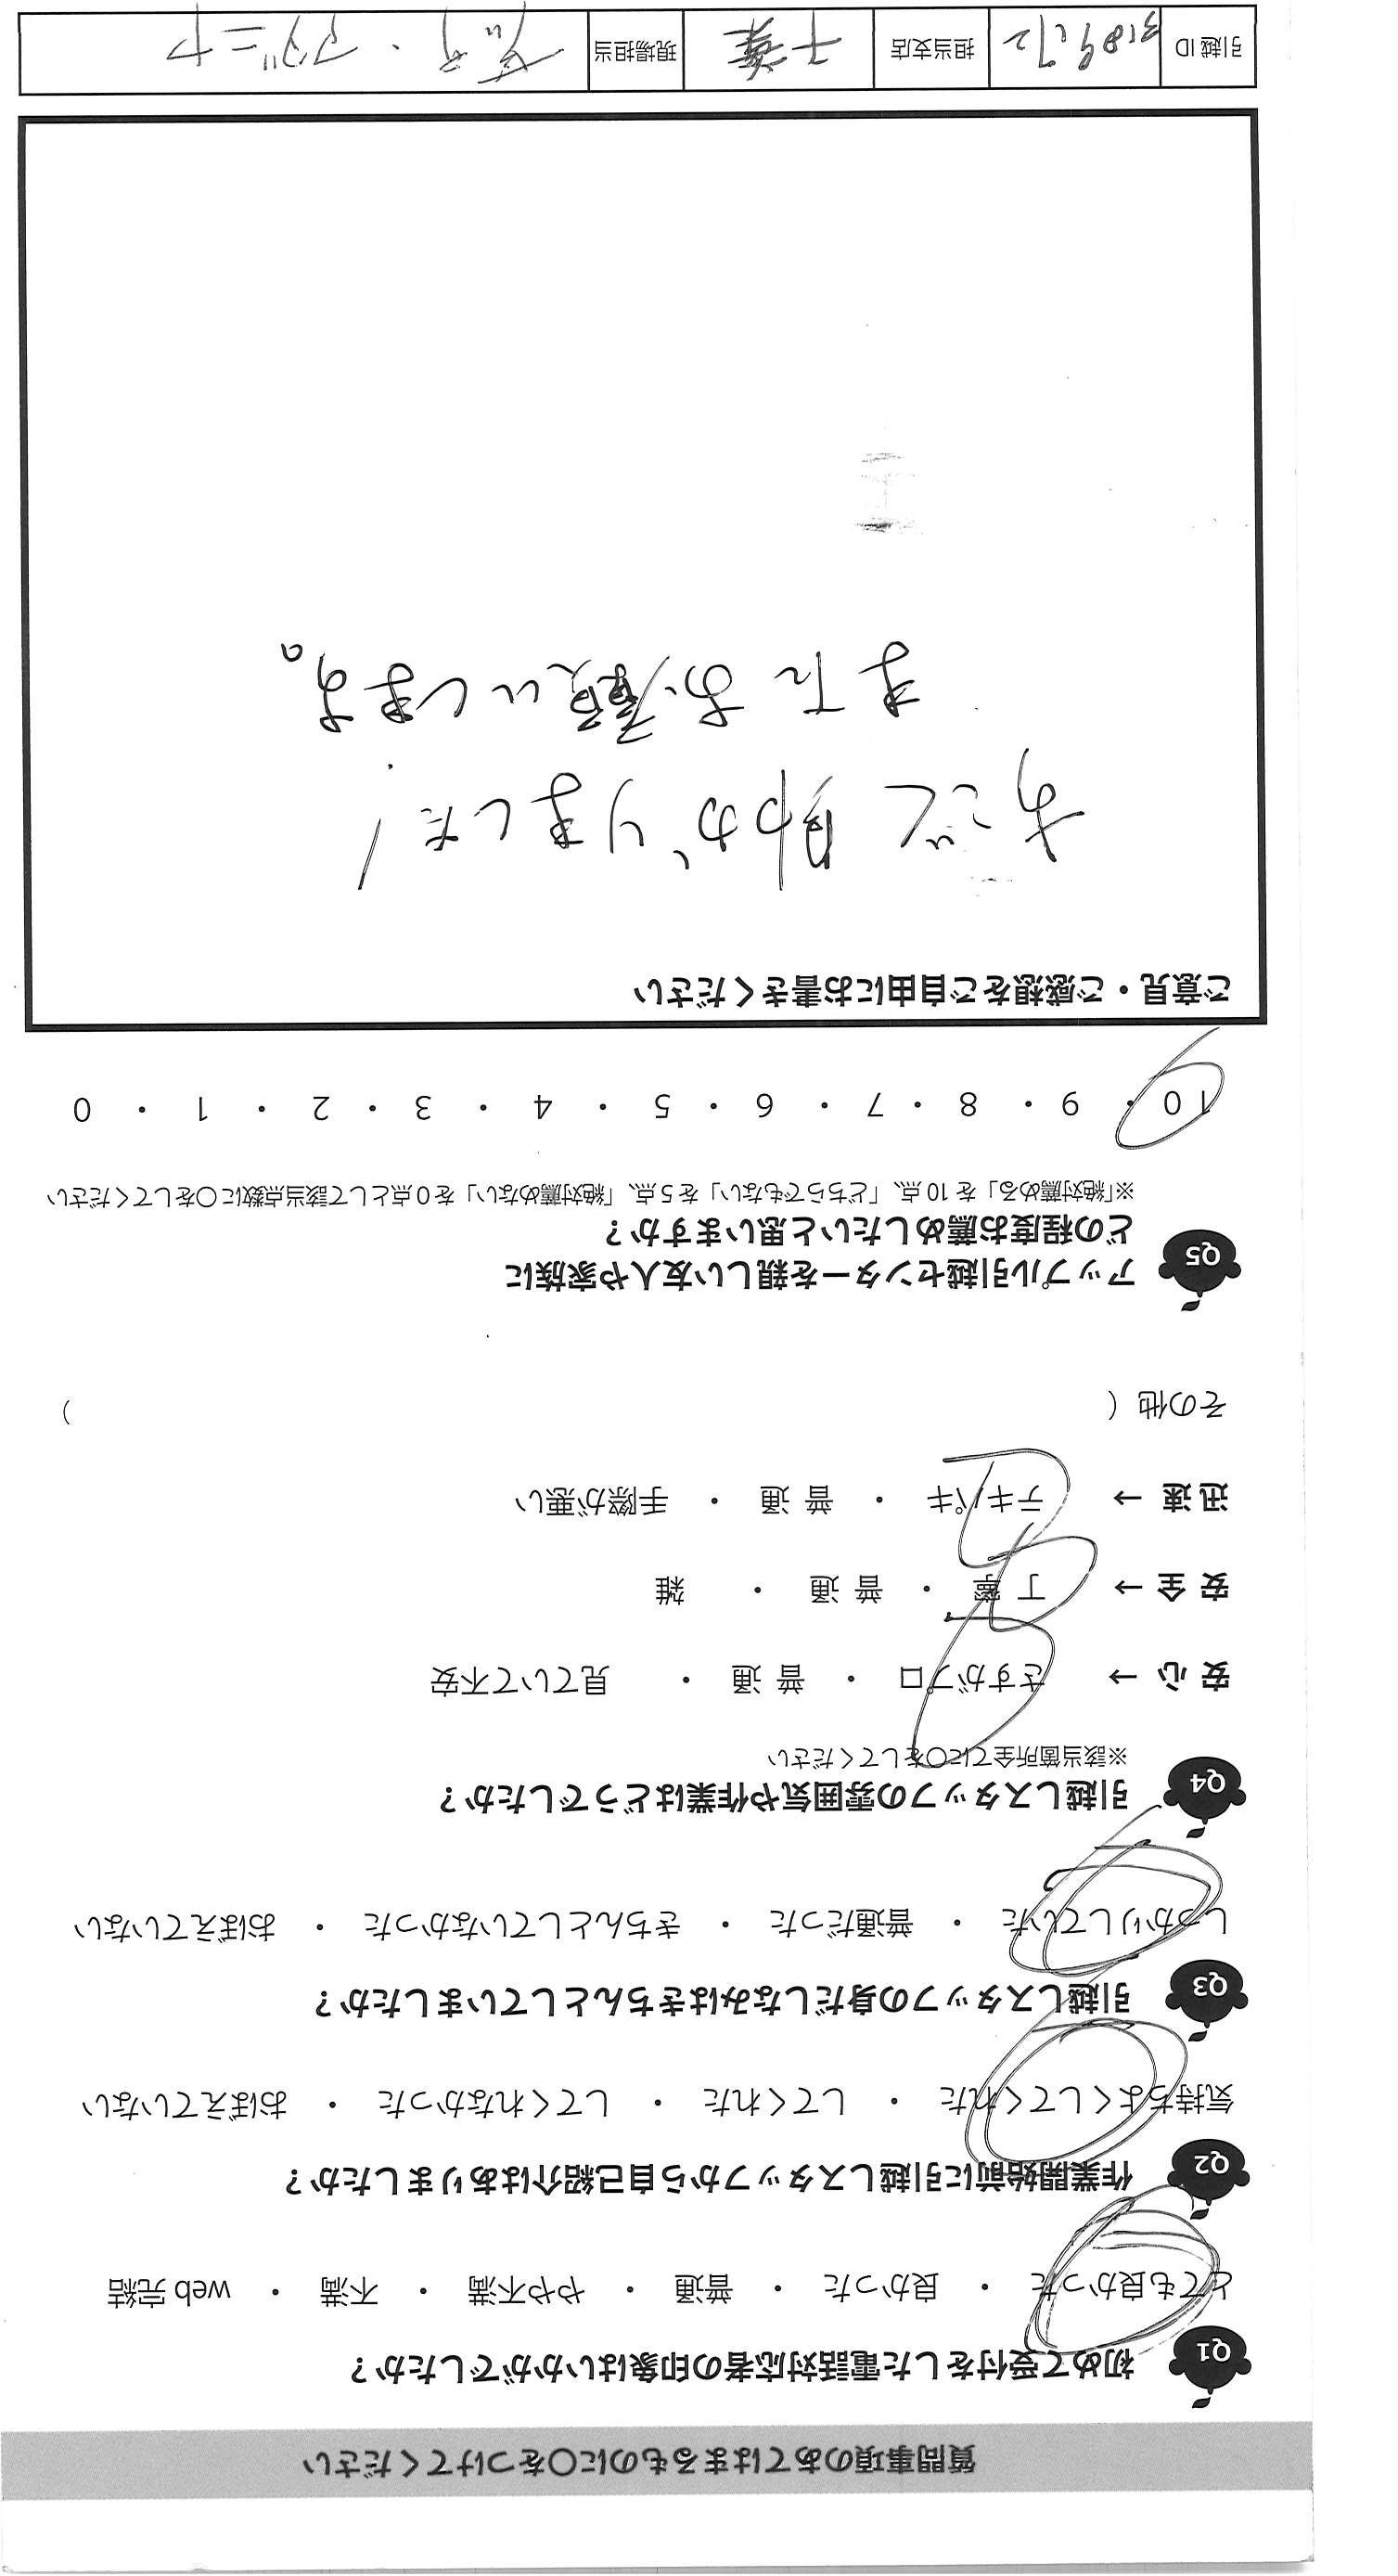 質問事項のあてはまるものに〇をつけてください
Q1 初めて受付をした電話対応者の印象はいかがでしたか？
とても良かった ・ 良かった ・ 普通 ・ やや不満 ・ 不満 ・ web 完結
Q2 作業開始前に引越しスタッフから自己紹介はありましたか？
気持ちよくしてくれた ・ してくれた ・ してくれなかった ・ おぼえていない
Q3 引越しスタッフの身だしなみはきちんとしていましたか？
しっかりしていた ・ 普通だった ・ きちんとしていなかった ・ おぼえていない
Q4 引越しスタッフの雰囲気や作業はどうでしたか？
※該当箇所全てに〇をしてください
安 心 → さすがプロ ・ 普 通 ・ 見ていて不安
安 全 → 丁 寧 ・ 普 通 ・ 雑
迅 速 → テキパキ ・ 普 通 ・ 手際が悪い
その他（ ）
Q5 アップル引越センターを親しい友人や家族に
どの程度お薦めしたいと思いますか？
※「絶対薦める」を 10 点、「どちらでもない」を 5 点、「絶対薦めない」を 0 点として該当点数に〇をしてください
10 ・ 9 ・ 8 ・ 7 ・ 6 ・ 5 ・ 4 ・ 3 ・ 2 ・ 1 ・ 0
ご意見・ご感想をご自由にお書きください
助かりました！
またお願いします。
引越 ID 担当支店 千葉 現場担当